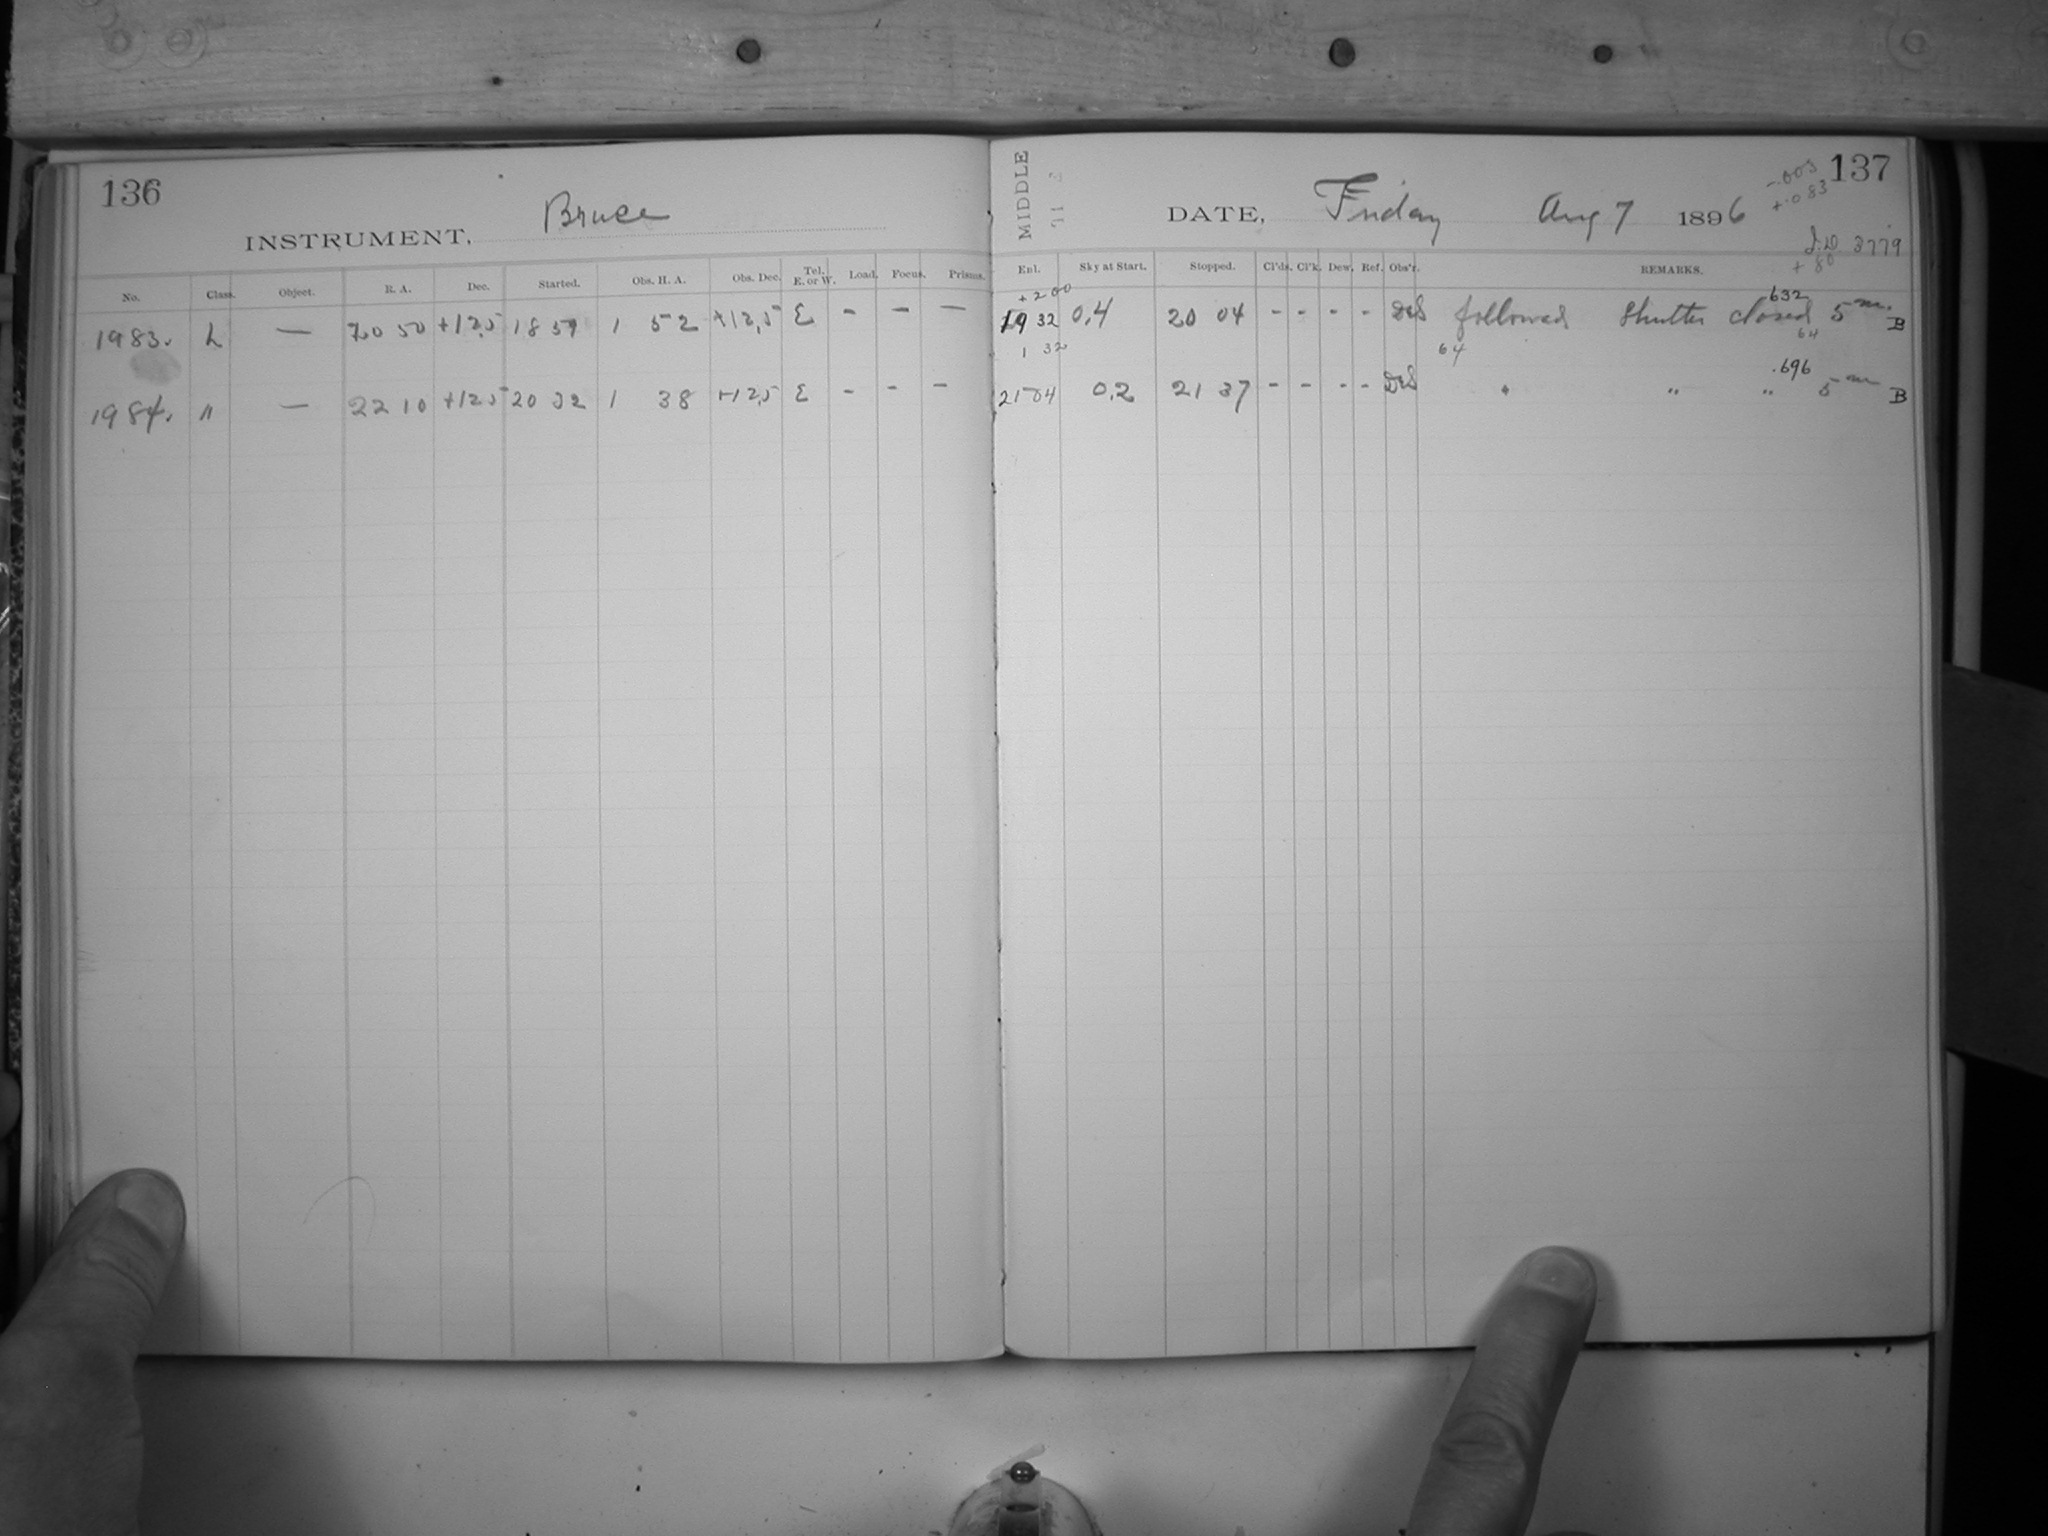 136
INSTRUMENT, Bruce
No. Class. Object. R. A. Dec. Started. Obs. H. A. Obs. Dec. Tel. E. or W. Load. Focus. Prisms.
1983. L — 20 50 +12,5 18 59 1 52 +12,5 E - - -
1984. " — 22 10 +12,5 20 32 1 38 +12,5 E - - -
MIDDLE
137
-.003
+.083
DATE, Friday Aug 7 1896
J.D. 3779
+ 80
Enl. Sky at Start. Stopped. Cl'ds. Cl'k. Dew. Ref. Obs'r. REMARKS.
+200 .632
19 32 0,4 20 04 - - - - followed Shutter closed 5m. B
1 32 64 64
.696
21 04 0,2 21 37 - - - - " " " 5m B